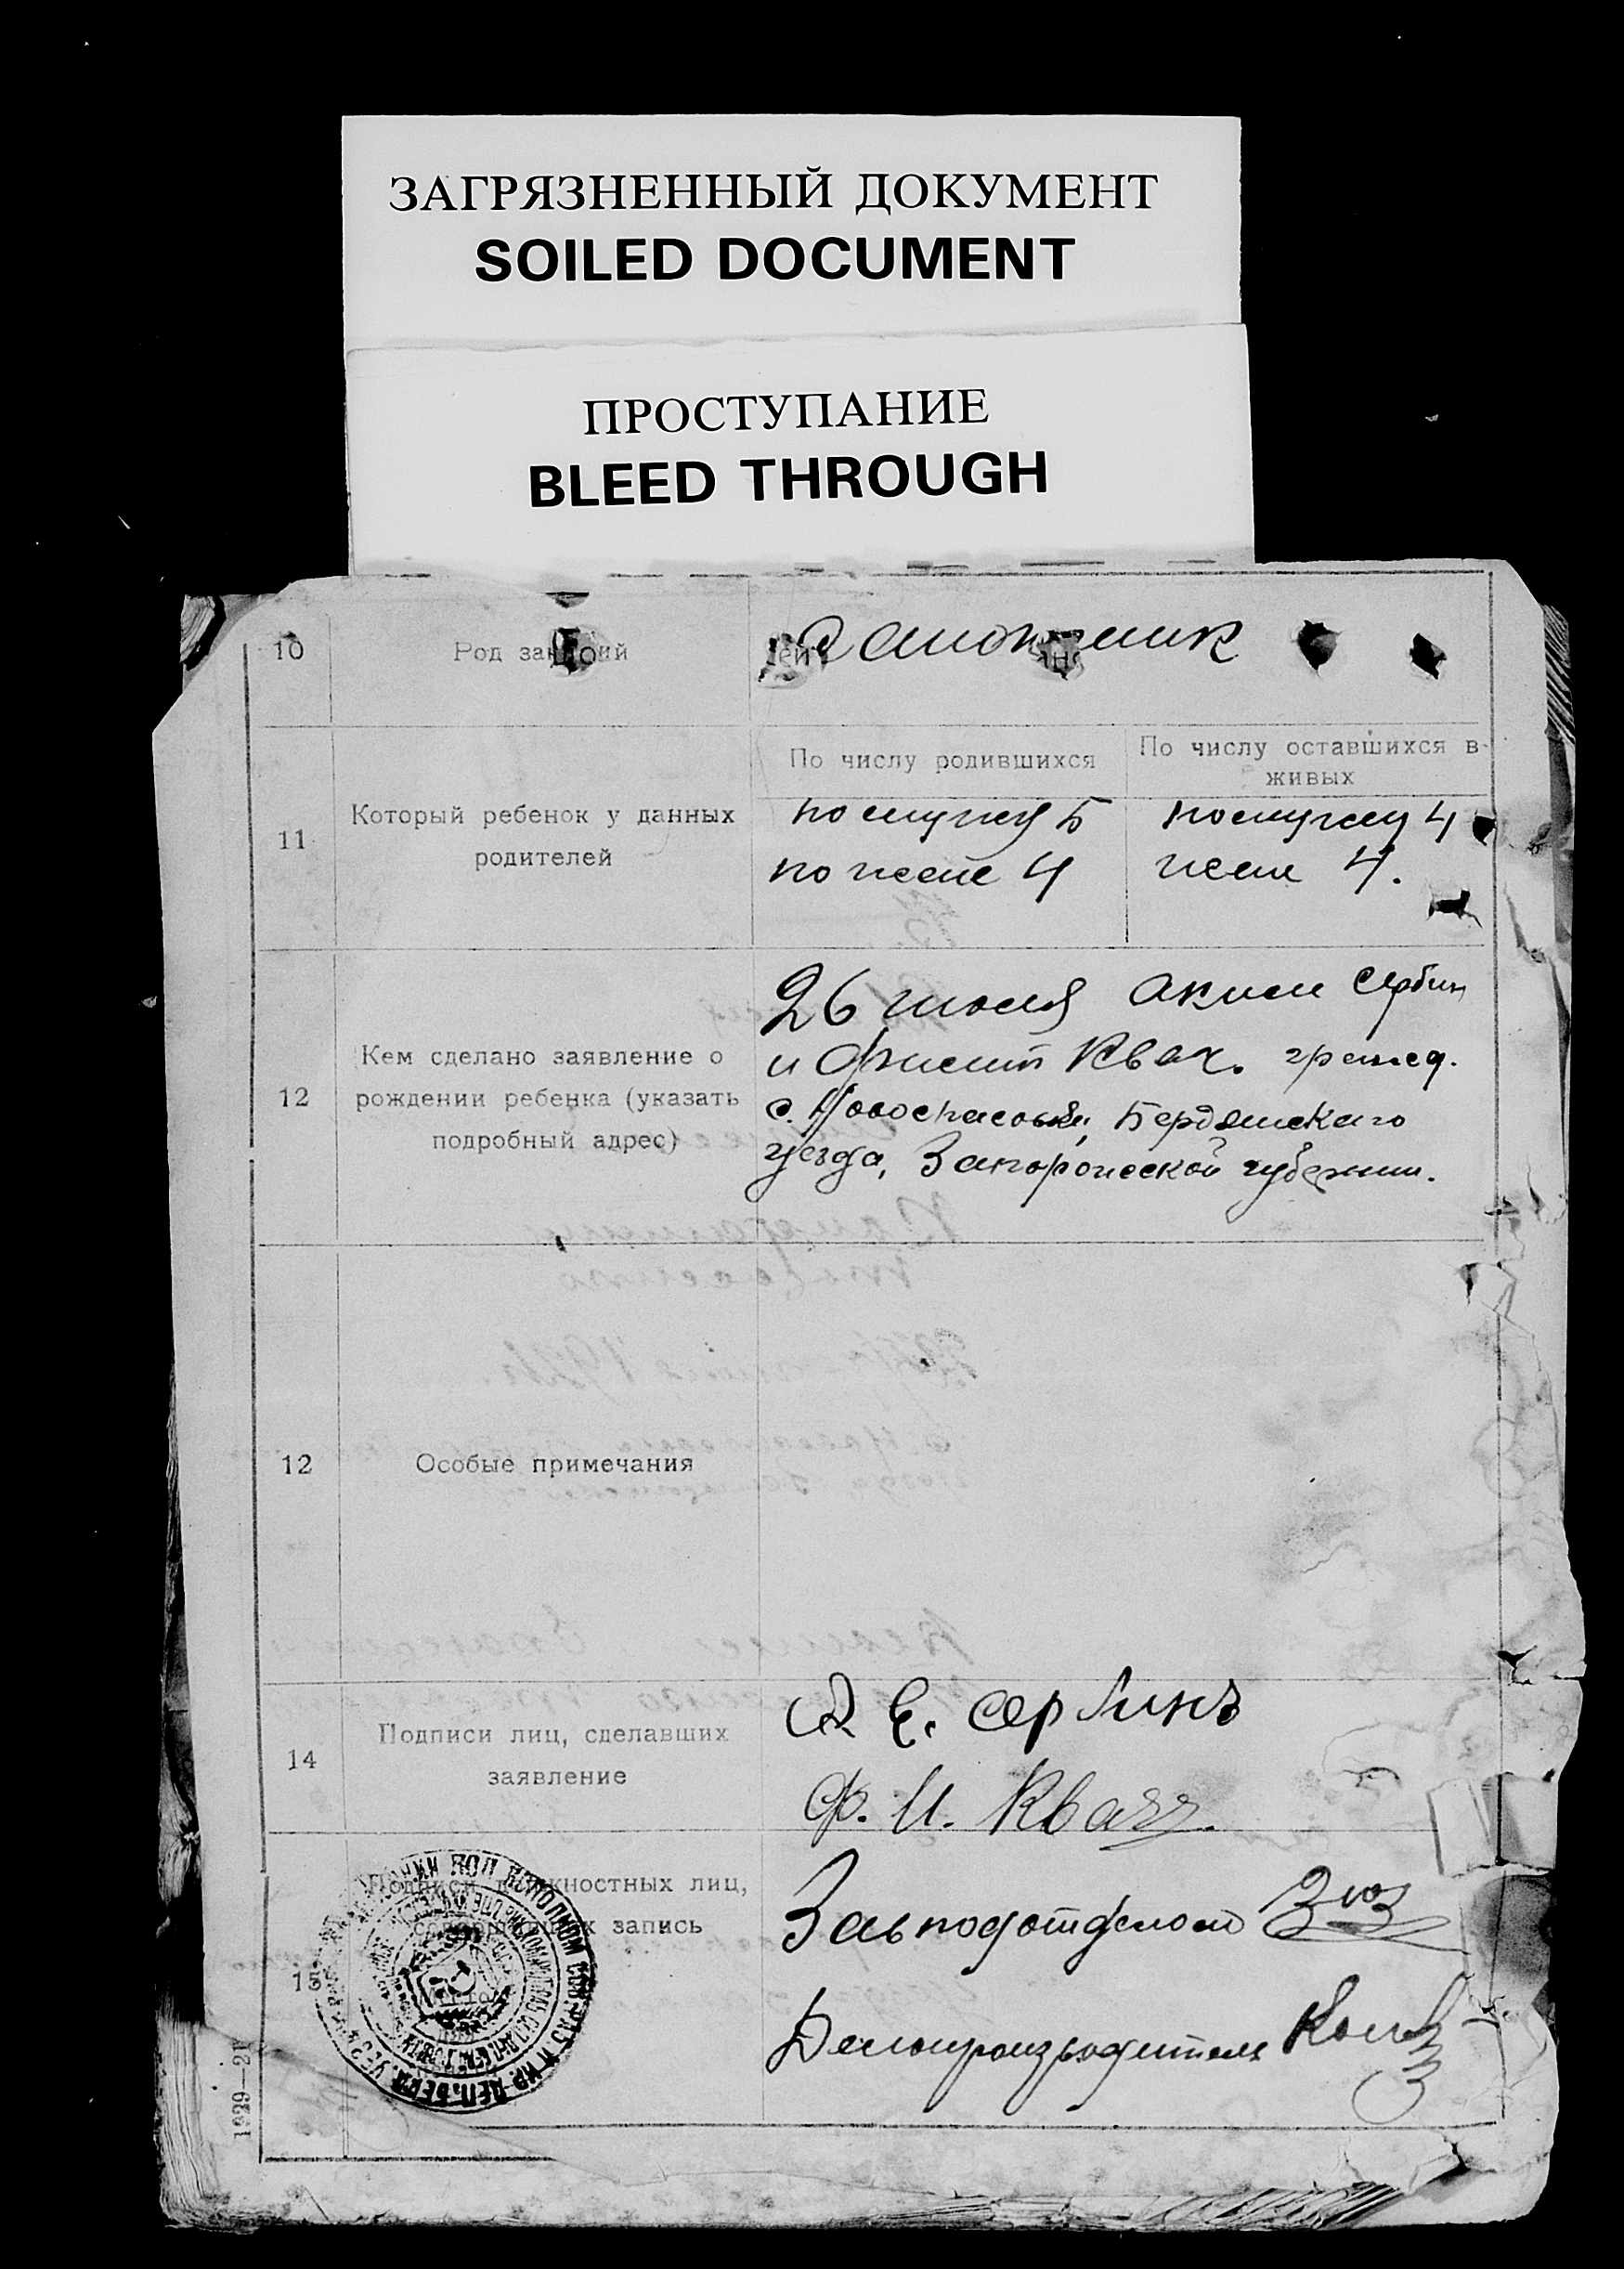 ЗАГРЯЗНЕННЫЙ ДОКУМЕНТ
SOILED DOCUMENT
ПРОСТУПАНИЕ
BLEED THROUGH
10 Род занятий
11 Который ребенок у данных
родителей
По числу родившихся
По числу оставшихся в
живых
по мужу 5
по жене 4
по мужу 4
жене 4.
12 Кем сделано заявление о
рождении ребенка (указать
подробный адрес)
26 июля Аким Сербин
и Филипп Квач. гражд.
с. Новоспасовки, Бердянскаго
уезда, Запорожской губернии.
12 Особые примечания
14 Подписи лиц, сделавших
заявление
А Е. Сербинъ
Ф. И. Квачъ.
15 Подписи должностных лиц,
запись
Зав подотделом
Делопроизводитель